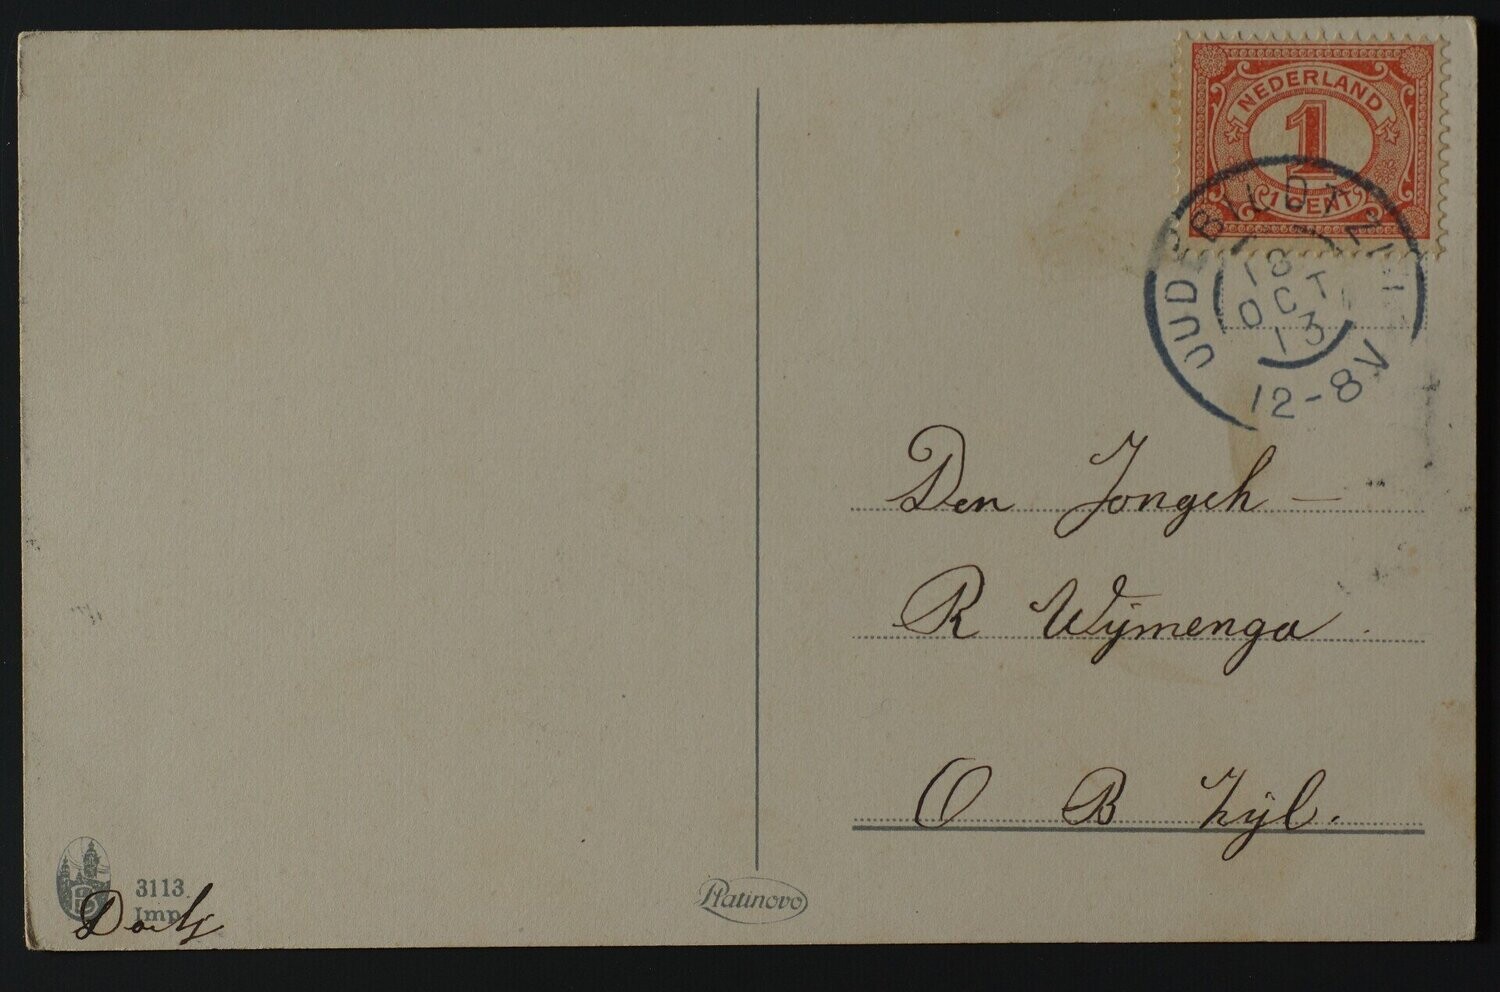 NEDERLAND
1
1 CENT
OUDEBILDTZIJL
18
OCT
13
12-8V
Den Jongeh
R Wijmenga
O B Zijl.
3113
Imp.
Platinovo